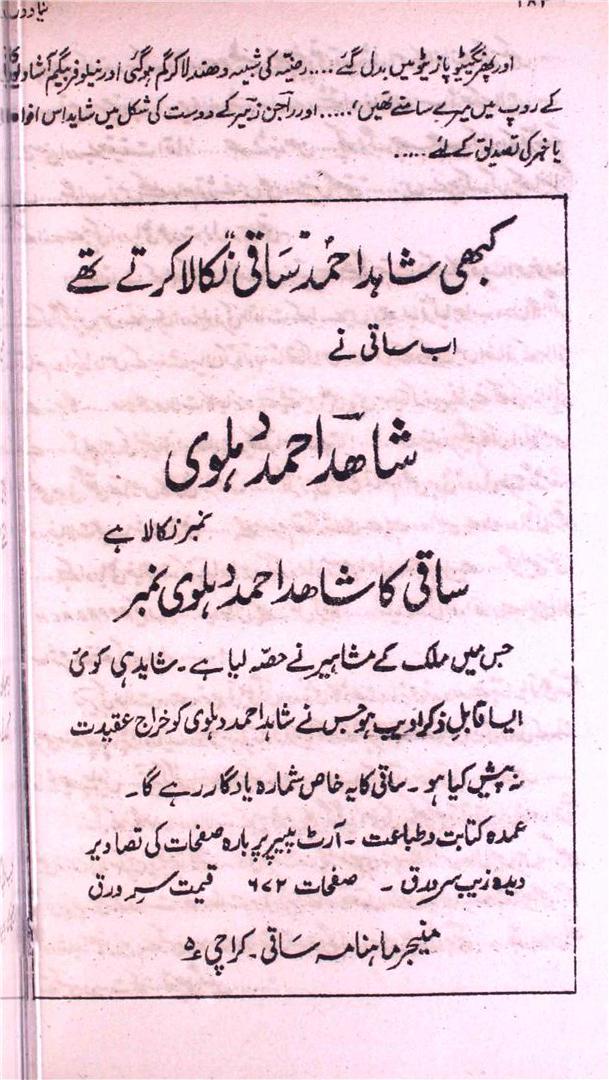 نیا دور
۱۸۲
اور پھر نگیٹو پازیٹو میں بدل گئے .... رضیّہ کی شبیہ دھندلا کر گم ہو گئی اور نیلوفر بیگم
کے روپ میں میرے سامنے تھیں' ..... اور راجن زبیر کے دوست کی شکل میں شاید اس
یا خبر کی تصدیق کے لئے .....
کبھی شاہد احمد "ساقی" نکالا کرتے تھے
اب ساقی نے
شاھد احمد دہلوی
نمبر نکالا ہے
ساقی کا شاھد احمد دہلوی نمبر
جس میں ملک کے مشاہیر نے حصّہ لیا ہے۔ شاید ہی کوئی
ایسا قابلِ ذکر ادیب ہو جس نے شاہد احمد دہلوی کو خراج عقیدت
نہ پیش کیا ہو۔ ساقی کا یہ خاص شمارہ یادگار رہے گا۔
عمدہ کتابت و طباعت۔ آرٹ پیپر پر بارہ صفحات کی تصاویر
دیدہ زیب سرورق۔ صفحات ۶۷۲ قیمت سرورق
منیجر ماہنامہ ساقی۔ کراچی ۵